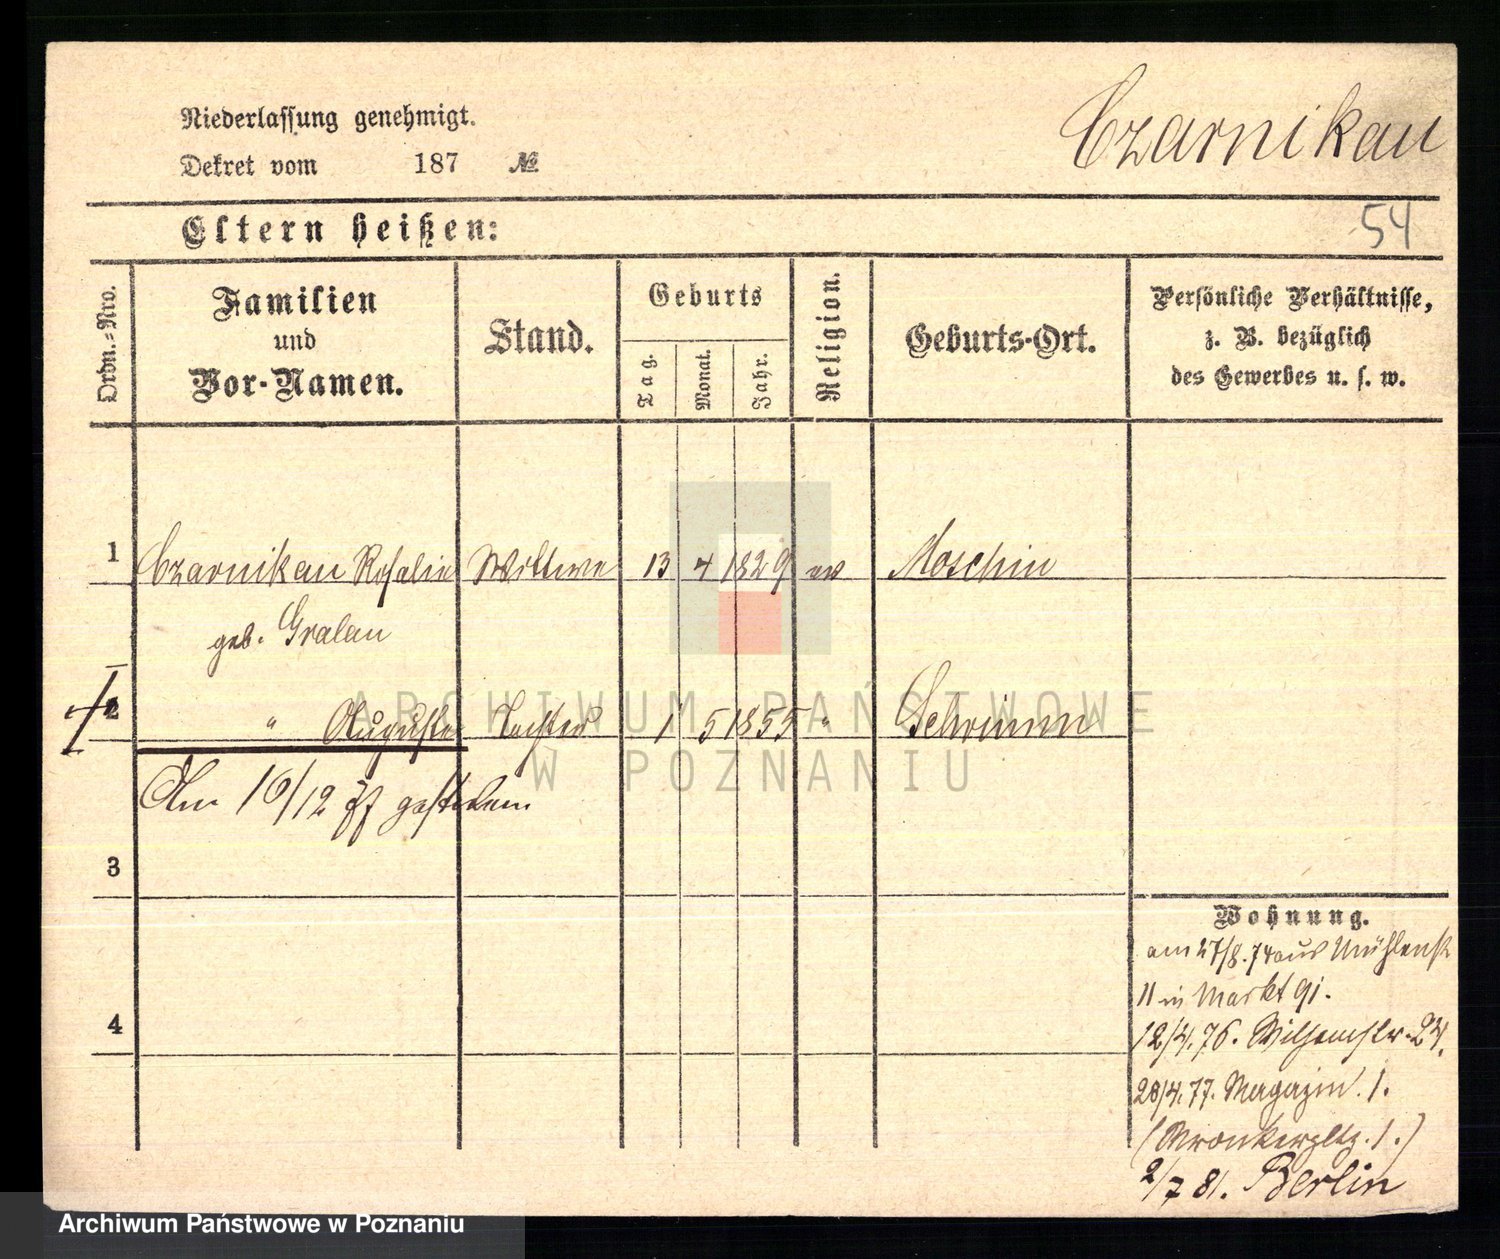 Niederlassung genehmigt.
Dekret vom 187 №
Czarnikau
54
Eltern heißen:
Ordn.-Nro.
Familien
und
Vor-Namen.
Stand.
Geburts
Tag.
Monat.
Jahr.
Religion.
Geburts-Ort.
Persönliche Verhältnisse,
z. B. bezüglich
des Gewerbes u. s. w.
1 Czarnikau Rosalie Wittwe 13 4 1829 ev Moschin
geb. Gralau
2 " Auguste Tochter 1 5 1855 " Schrimm
Am 16/12 77 gestorben
3
4
Wohnung.
am 27/8. 74 aus Mühlenstr
11 in Markt 91.
12/4. 76. Wilhemstr. 24.
28/4. 77. Magazin. 1.
(Wronkerpltz. 1.)
2/7 81. Berlin
ARCHIWUM PAŃSTWOWE
W POZNANIU
Archiwum Państwowe w Poznaniu